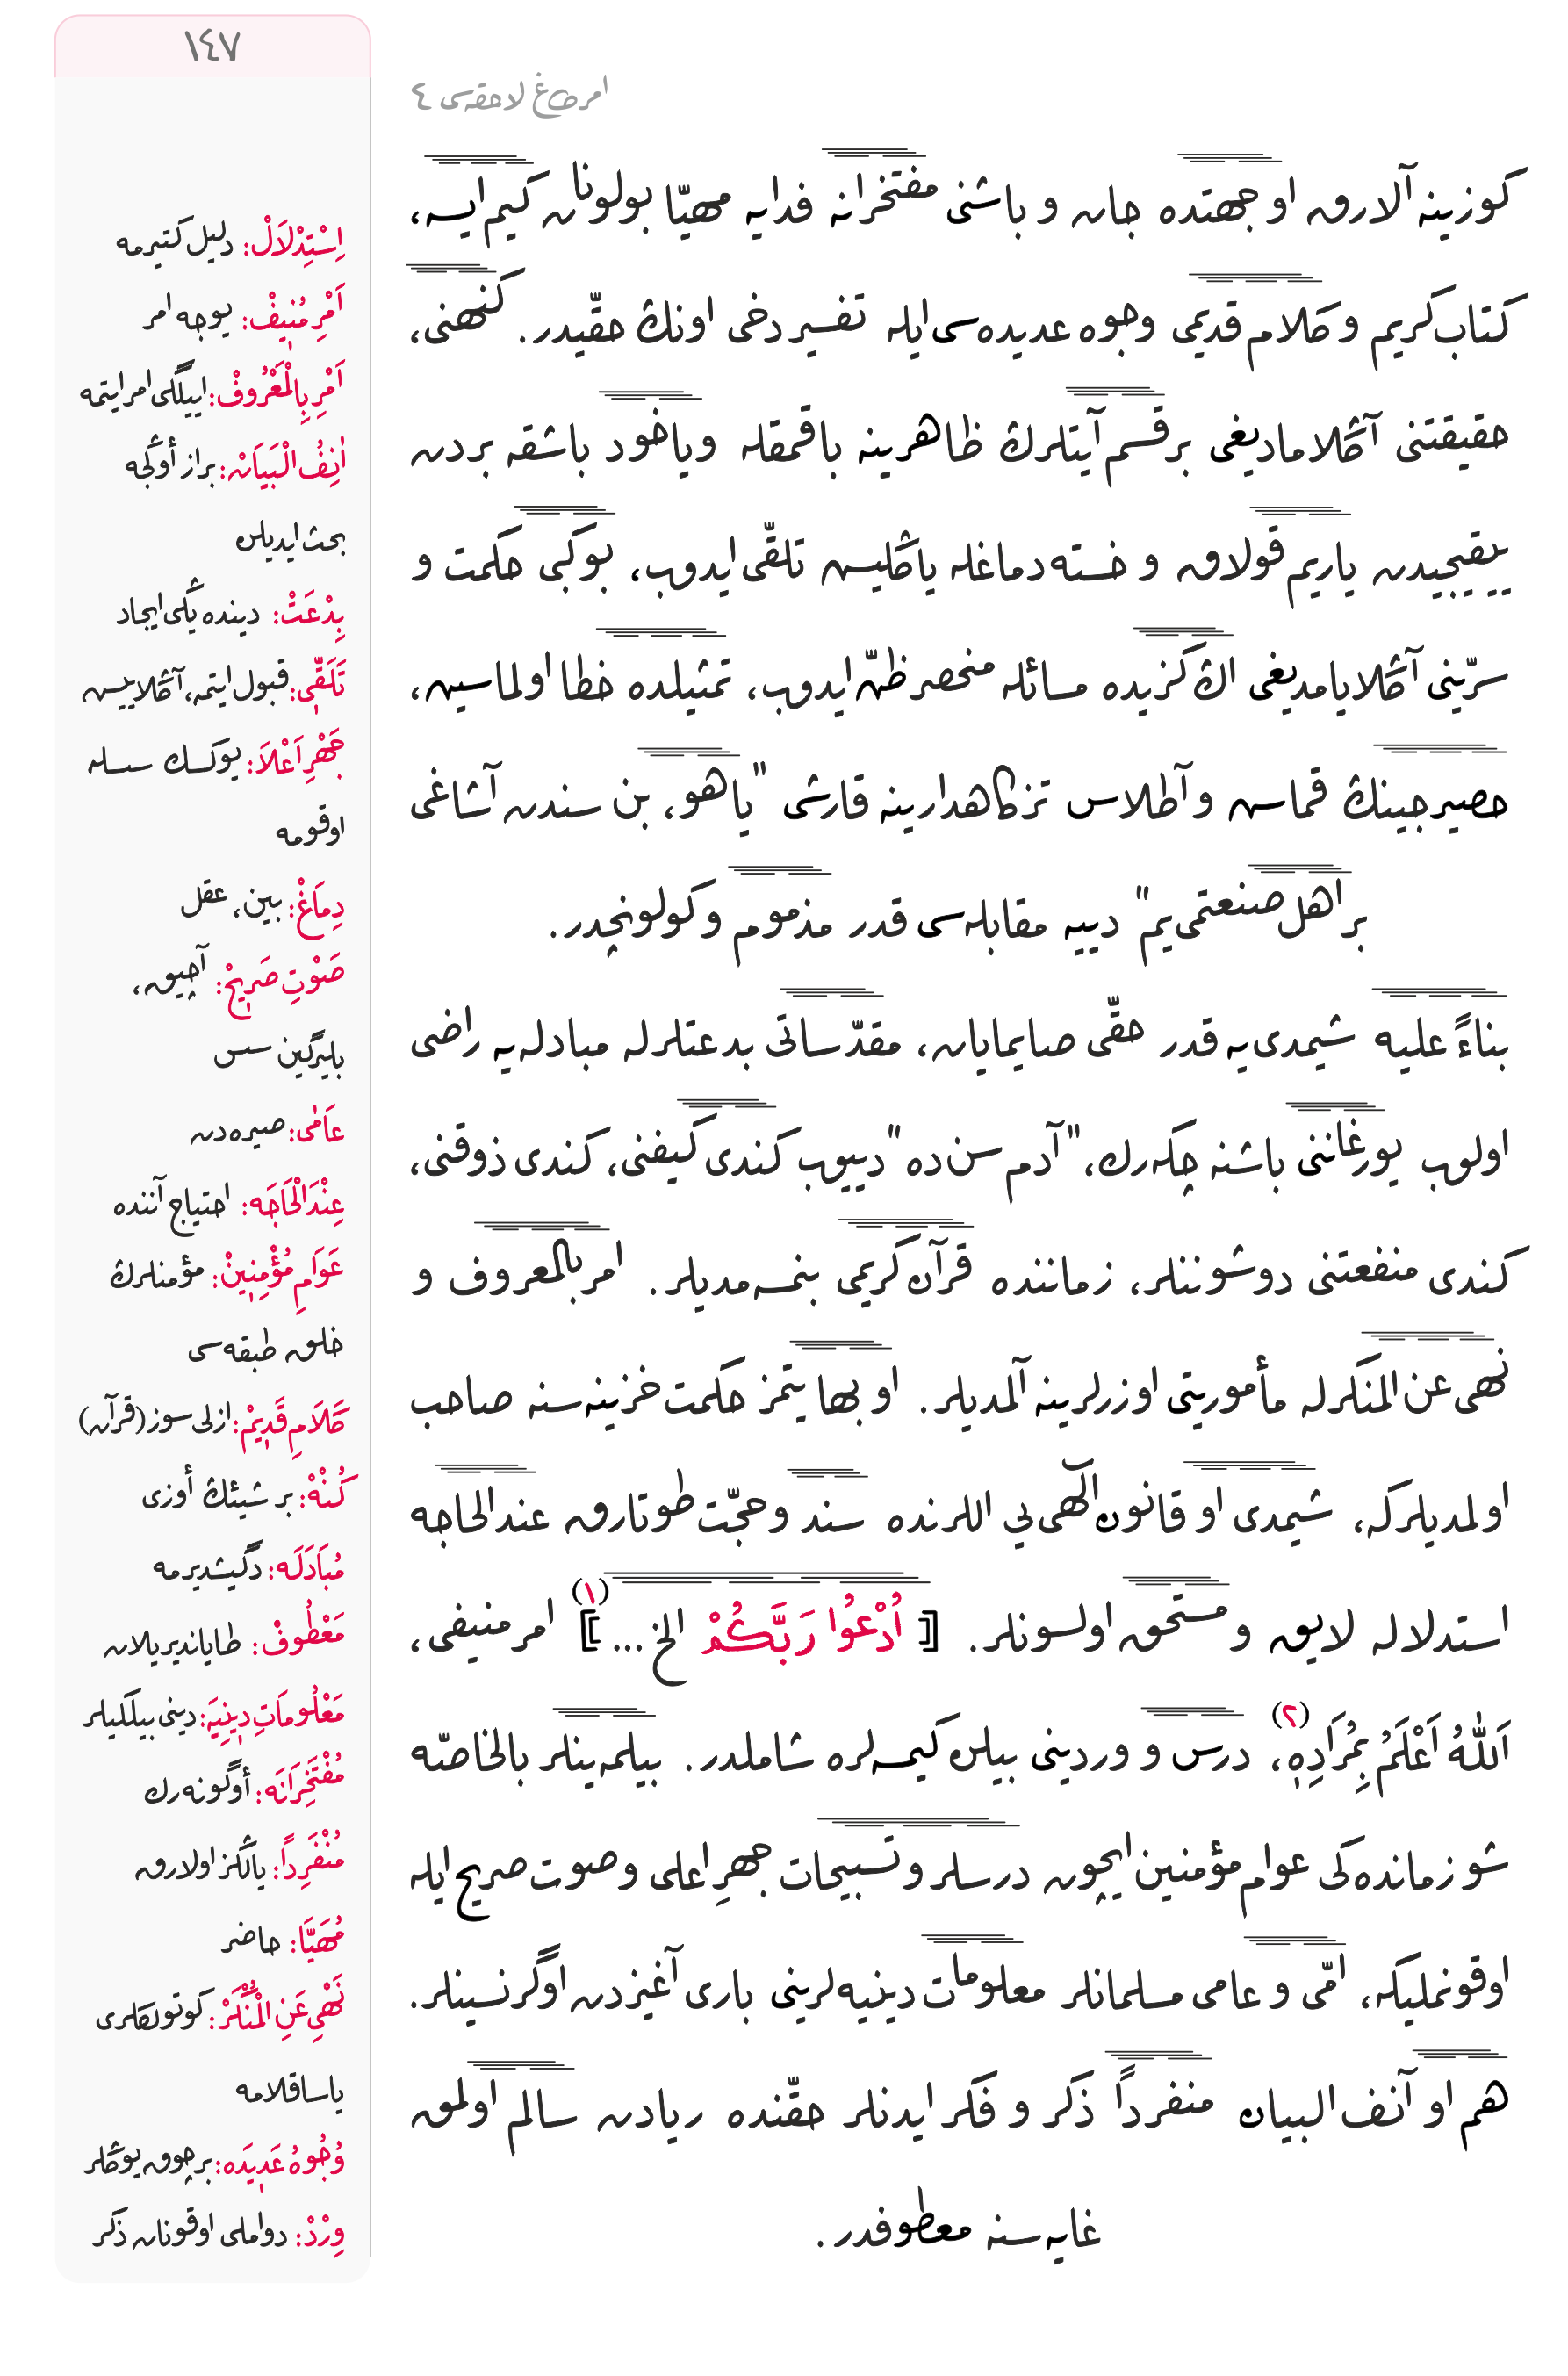 ١٤٧
امرطاغ لاحقه‌سی ٤
كوزينه آلارق او جهتده جان و باشنی مفتخرانه فدايه مهيّا بولونان كيم ايسه،
كتاب كريم و كلام قديمی وجوه عديده‌سی ايله تفسير دخی اونڭ حقّيدر. كنهنی،
حقيقتنی آڭلاماديغی برقسم آيتلرڭ ظاهرينه باقمقله وياخود باشقه بردن
ييقيجيدن ياريم قولاق و خسته دماغله ياڭليس تلقّی ايدوب، بوكبی حكمت و
سرّينی آڭلايامديغی اڭ كزيده مسائله منحصر ظنّ ايدوب، تمثيلده خطا اولماسين،
حصيرجينڭ قماس و آطلاس تزكاهدارينه قارشی "ياهو، بن سندن آشاغی
بر اهل صنعتمی‌يم" دييه مقابله‌سی قدر مذموم و كولونجدر.
بناءً عليه شيمدی‌يه قدر حقّی صايمايان، مقدّساتی بدعتلرله مبادله‌يه راضی
اولوب يورغاننی باشنه چكه‌رك، "آدم سن ده" دييوب كندی كيفنی، كندی ذوقنی،
كندی منفعتنی دوشوننلر، زماننده قرآن كريمی بنمسه‌مديلر. امر بالمعروف و
نهی عن المنكرله مأموريتی اوزرلرينه آلمديلر. او بها يتمز حكمت خزينه‌سنه صاحب
اولمديلركه، شيمدی او قانون الٓهی‌يی اللرنده سند و حجّت طوتارق عندالحاجه
استدلاله لايق و مستحق اولسونلر. [ اُدْعُوا رَبَّكُمْ الخ... ] (١) امر منيفی،
اَللّٰهُ اَعْلَمُ بِمُرَادِهٖ، (٢) درس و وردينی بيلن كيمسه‌لره شاملدر. بيلمه‌ينلر بالخاصّه
شو زمانده‌كی عوام مؤمنين ايچون درسلر و تسبيحات جهرِ اعلی و صوت صريح ايله
اوقونمليكه، امّی و عامی مسلمانلر معلومات دينيه‌لرينی باری آغيزدن اوگرنسينلر.
هم او آنف البيان منفرداً ذكر و فكر ايدنلر حقّنده ريادن سالم اولمق
غايه‌سنه معطوفدر.
اِسْتِدْلَالْ: دليل كتيرمه
اَمْرِ مُنٖيفْ: يوجه امر
اَمْرِ بِالْمَعْرُوفْ: اييلگی امر ايتمه
اٰنِفُ الْبَيَانْ: براز أوڭجه
بحث ايديلن
بِدْعَتْ: دينده يڭی ايجاد
تَلَقّٖی: قبول ايتمه، آڭلاييس
جَهْرِ اَعْلَا: يوكسك سسله
اوقومه
دِمَاغْ: بين، عقل
صَوْتِ صَرٖيحْ: آچيق،
بليرگين سس
عَامٖی: صيره‌دن
عِنْدَالْحَاجَه: احتياج آننده
عَوَامِ مُؤْمِنٖينْ: مؤمنلرڭ
خلق طبقه‌سی
كَلَامِ قَدٖيمْ: ازلی سوز (قرآن)
كُنْهْ: بر شيئڭ أوزی
مُبَادَلَه: دگيشديرمه
مَعْطُوفْ: طاياندیريلان
مَعْلُومَاتِ دٖينِيَه: دينی بيلگيلر
مُفْتَخِرَانَه: أوگونه‌رك
مُنْفَرِداً: ياڭلز اولارق
مُهَيَّا: حاضر
نَهْیِ عَنِ الْمُنْكَرْ: كوتولكلری
ياساقلامه
وُجُوهُ عَدٖيدَه: بر چوق يوڭلر
وِرْدْ: دواملی اوقونان ذكر